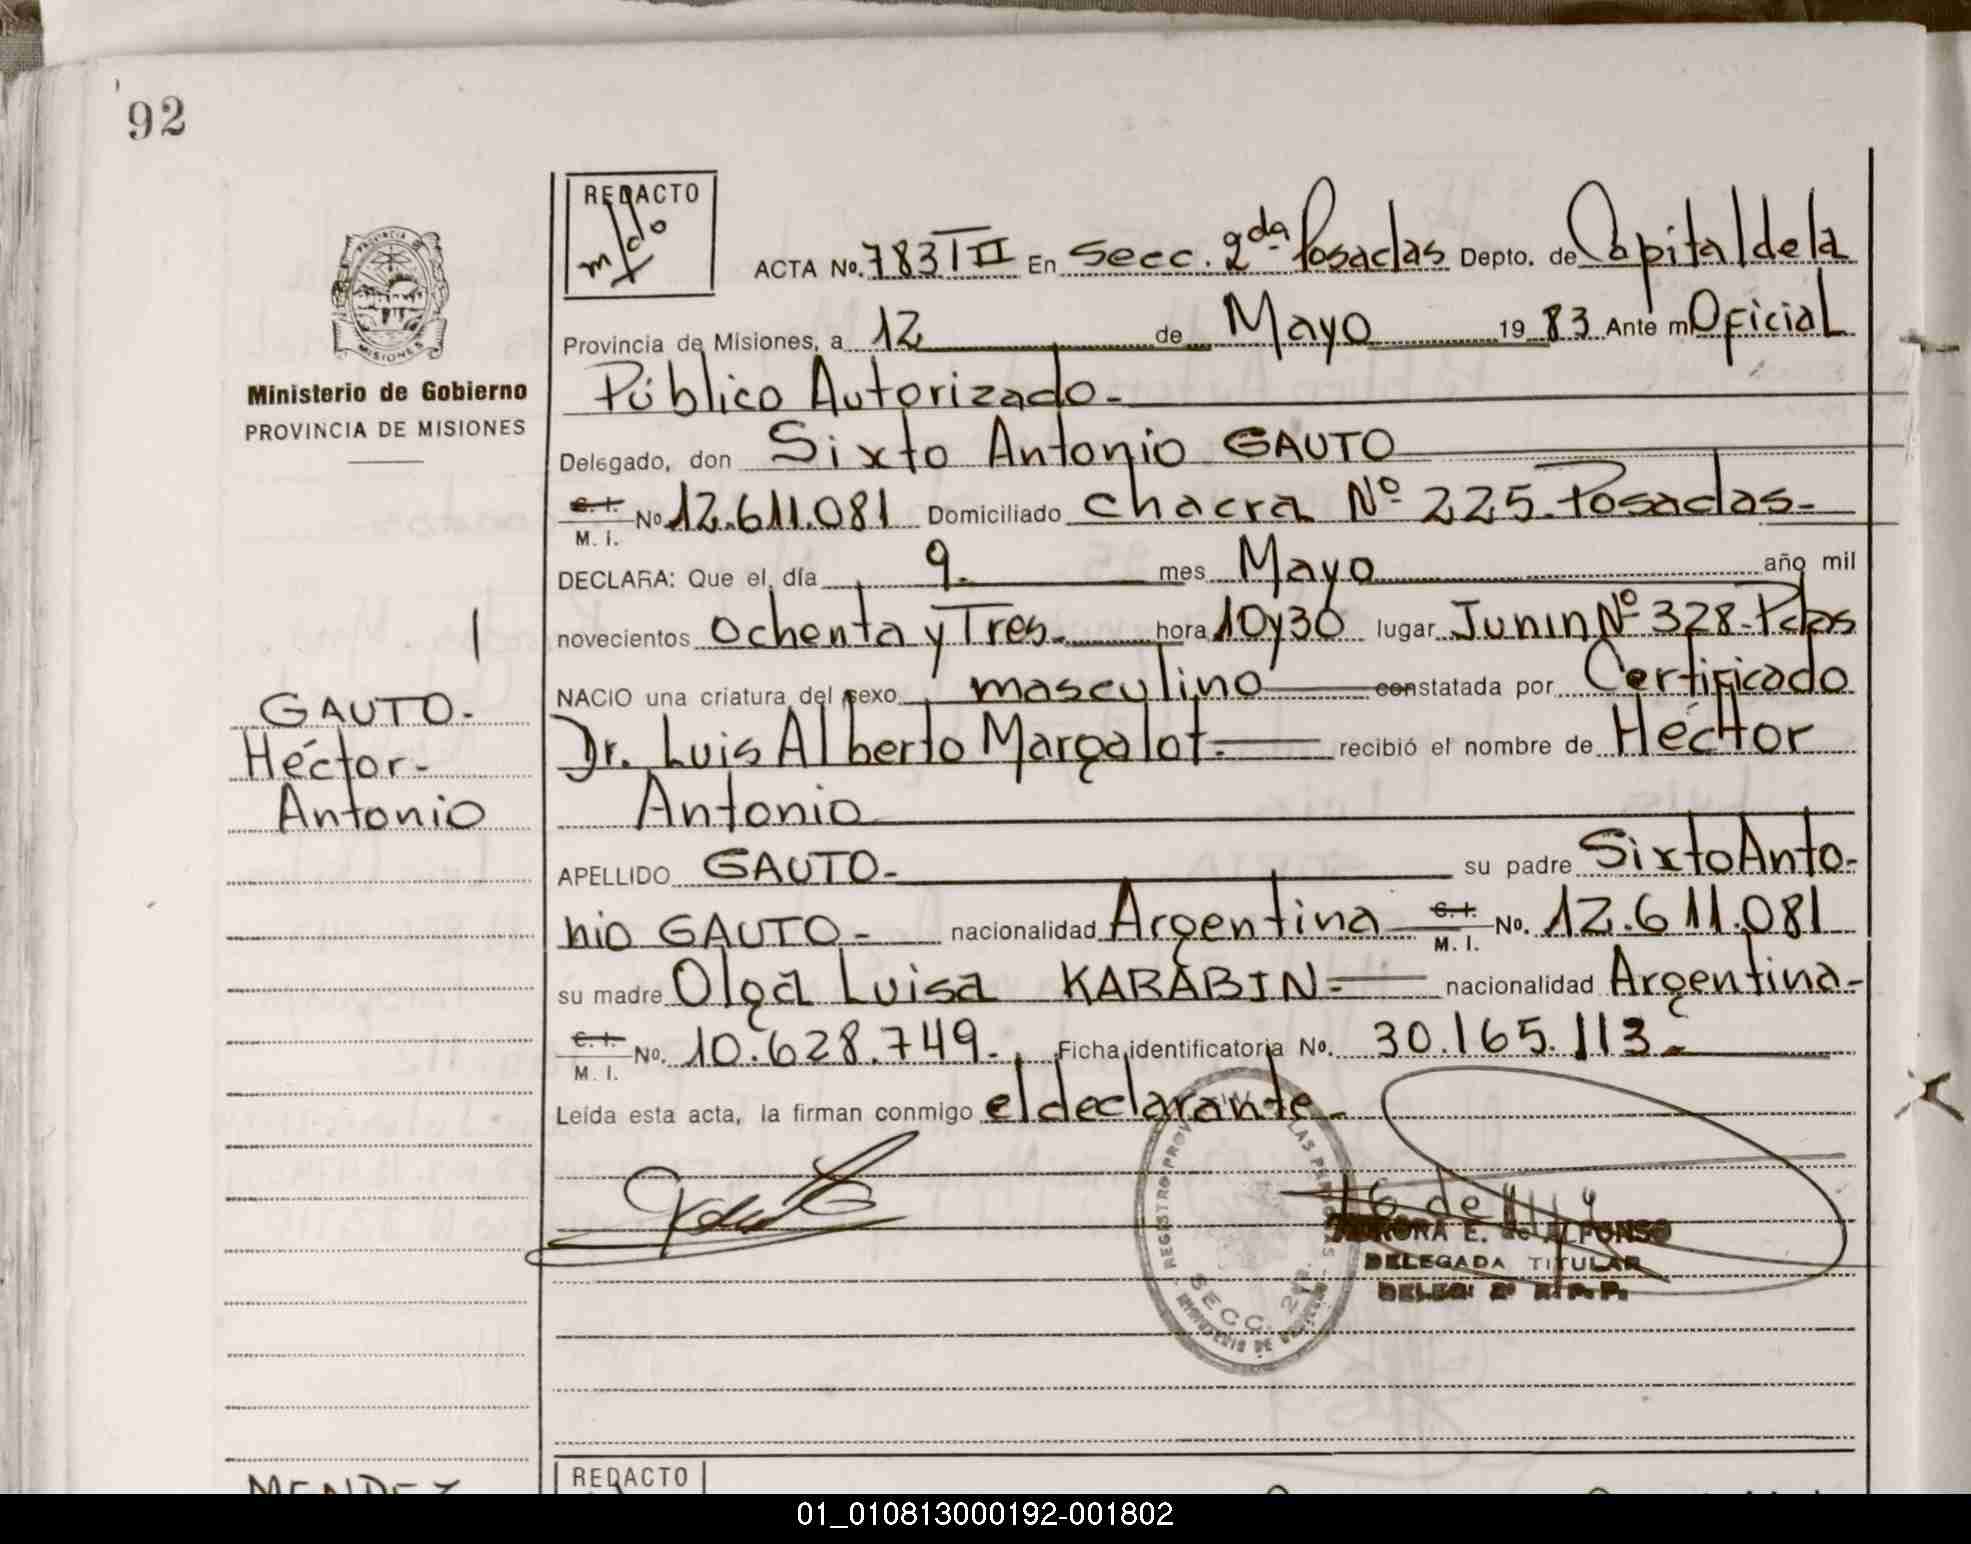 92
REDACTO
ACTA No. 783 TII En Secc. 2da Posadas Depto. de Capital de la
Provincia de Misiones, a 12 de Mayo 19 83 Ante mi Oficial
Público Autorizado.-
Ministerio de Gobierno
PROVINCIA DE MISIONES
Delegado, don Sixto Antonio GAUTO
C. I.
M. I. No. 12.611.081 Domiciliado chacra Nº 225. Posadas.-
DECLARA: Que el día 9. mes Mayo año mil
novecientos ochenta y Tres. hora 10y30 lugar Junin Nº 328-Pdas
NACIO una criatura del sexo masculino constatada por Certificado
Dr. Luis Alberto Margalot.- recibió el nombre de Héctor
Antonio
GAUTO.-
Héctor.-
Antonio
APELLIDO GAUTO.- su padre Sixto Anto-
nio GAUTO.- nacionalidad Argentina C. I. M. I. No. 12.611.081
su madre Olga Luisa KARABIN.- nacionalidad Argentina.-
C. I.
M. I. No. 10.628.749.- Ficha identificatoria No. 30.165.113.-
Leída esta acta, la firman conmigo el declarante.-
REGISTRO PROV. DE LAS PERSONAS
SECC. 2da.
MINISTERIO DE GOBIERNO
AURORA E. de ALFONSO
DELEGADA TITULAR
DELEG. 2ª R. P. P.
MENDEZ
REDACTO
01_010813000192-001802